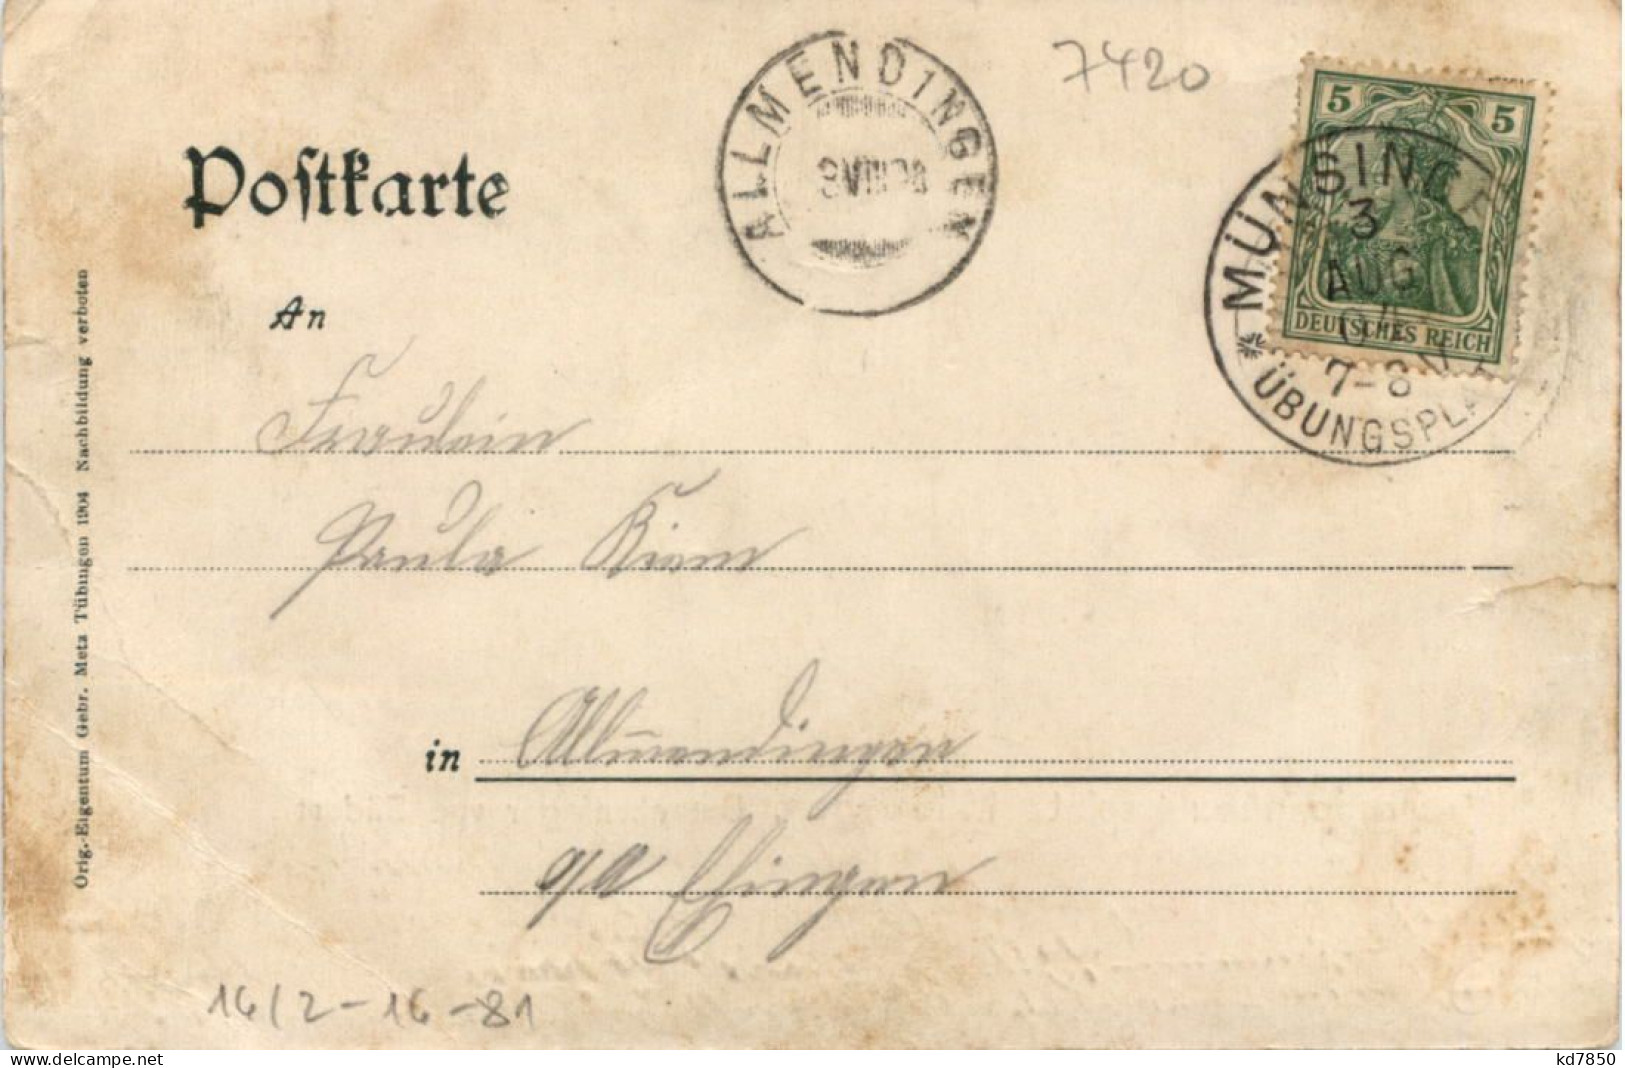 7420
5 5
DEUTSCHES REICH
MÜNSINGE
3
AUG
04
7-8 N
* ÜBUNGSPLA
ALLMENDINGEN
3 VIII
Postkarte
An
Fräulein
Paula
in Allmendingen
o/a Ehingen
16/2-16-81
Orig.-Eigentum Gebr. Metz Tübingen 1904 Nachbildung verboten
www.delcampe.net
kd7850